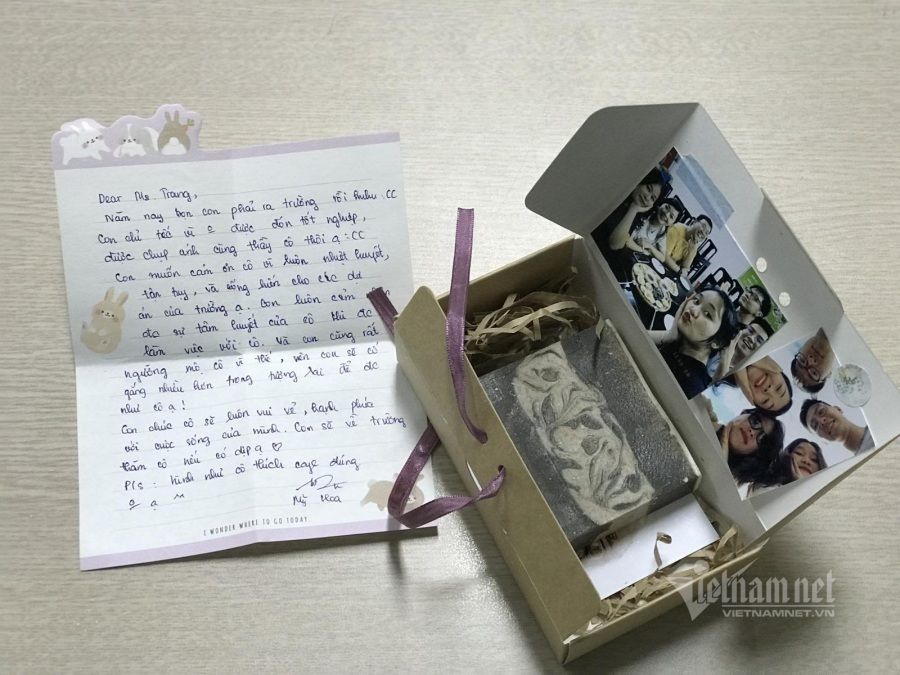 Dear Ms. Trang,
Năm nay bọn con phải ra trường rồi huhu :CC
Con chỉ tiếc vì o được đón tốt nghiệp,
được chụp ảnh cùng thầy cô thôi ạ :CC
Con muốn cảm ơn cô vì luôn nhiệt huyết,
tận tụy, và cống hiến cho các dự
án của trường ạ. Con luôn cảm nhận
đc sự tâm huyết của cô khi đc
làm việc với cô. Và con cũng rất
ngưỡng mộ cô vì thế, nên con sẽ cố
gắng nhiều hơn trong tương lai để đc
như cô ạ!
Con chúc cô sẽ luôn vui vẻ, hạnh phúc
với cuộc sống của mình. Con sẽ về trường
thăm cô nếu có dịp ạ ♡
P/s: hình như cô thích
ạ ^^
Mỹ Hoa
I WONDER WHERE TO GO TODAY
Vietnam.net
VIETNAMNET.VN